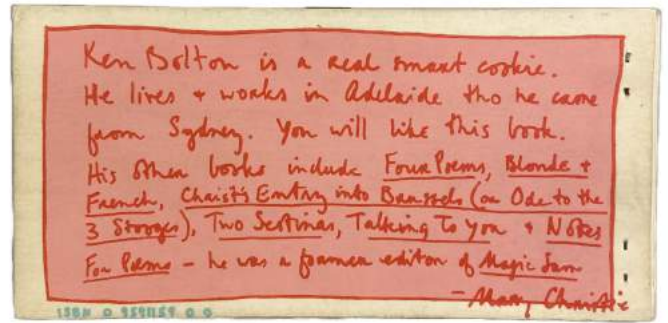 Ken Bolton is a real smart cookie.
He lives + works in Adelaide tho he came
from Sydney. You will like this book.
His other books include Four Poems, Blonde +
French, Christ's Entry into Brussels (or Ode to the
3 Stooges), Two Sestinas, Talking To You + Notes
For Poems – he was a former editor of Magic Sam
– Mary Christie
ISBN 0 9591159 0 0